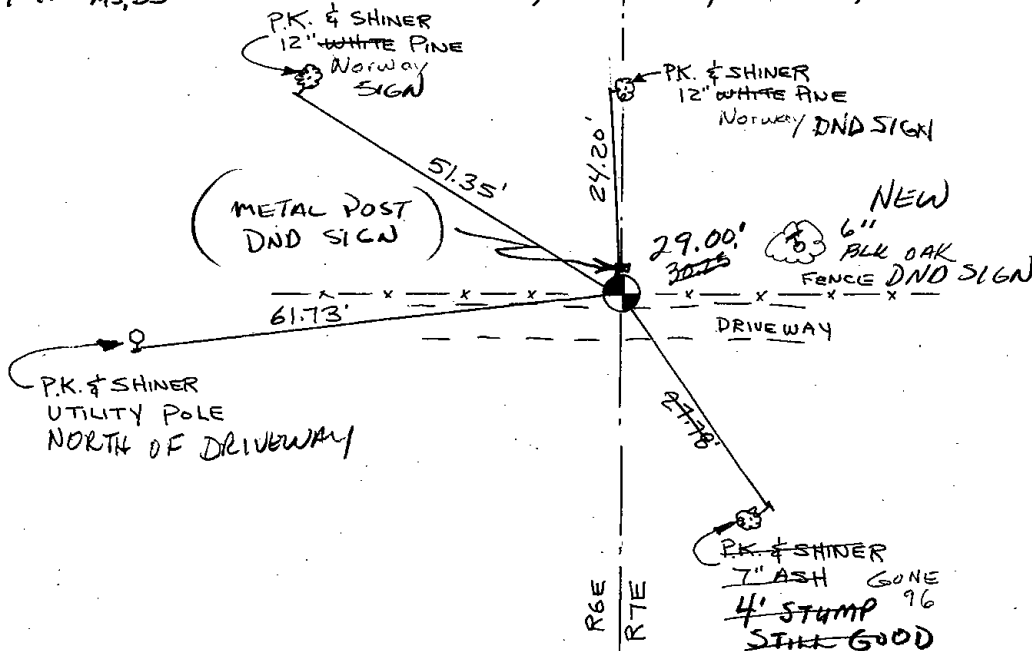 P.K. & SHINER
12" WHITE PINE
Norway
SIGN
P.K. & SHINER
12" WHITE PINE
Norway DND SIGN
51.35'
24.20'
(METAL POST
DND SIGN)
NEW
29.00'
30.25
6"
BLK OAK
FENCE DND SIGN
61.73'
DRIVEWAY
P.K. & SHINER
UTILITY POLE
NORTH OF DRIVEWAY
27.78'
P.K. & SHINER
7" ASH GONE
96
4' STUMP
STILL GOOD
R6E
R7E